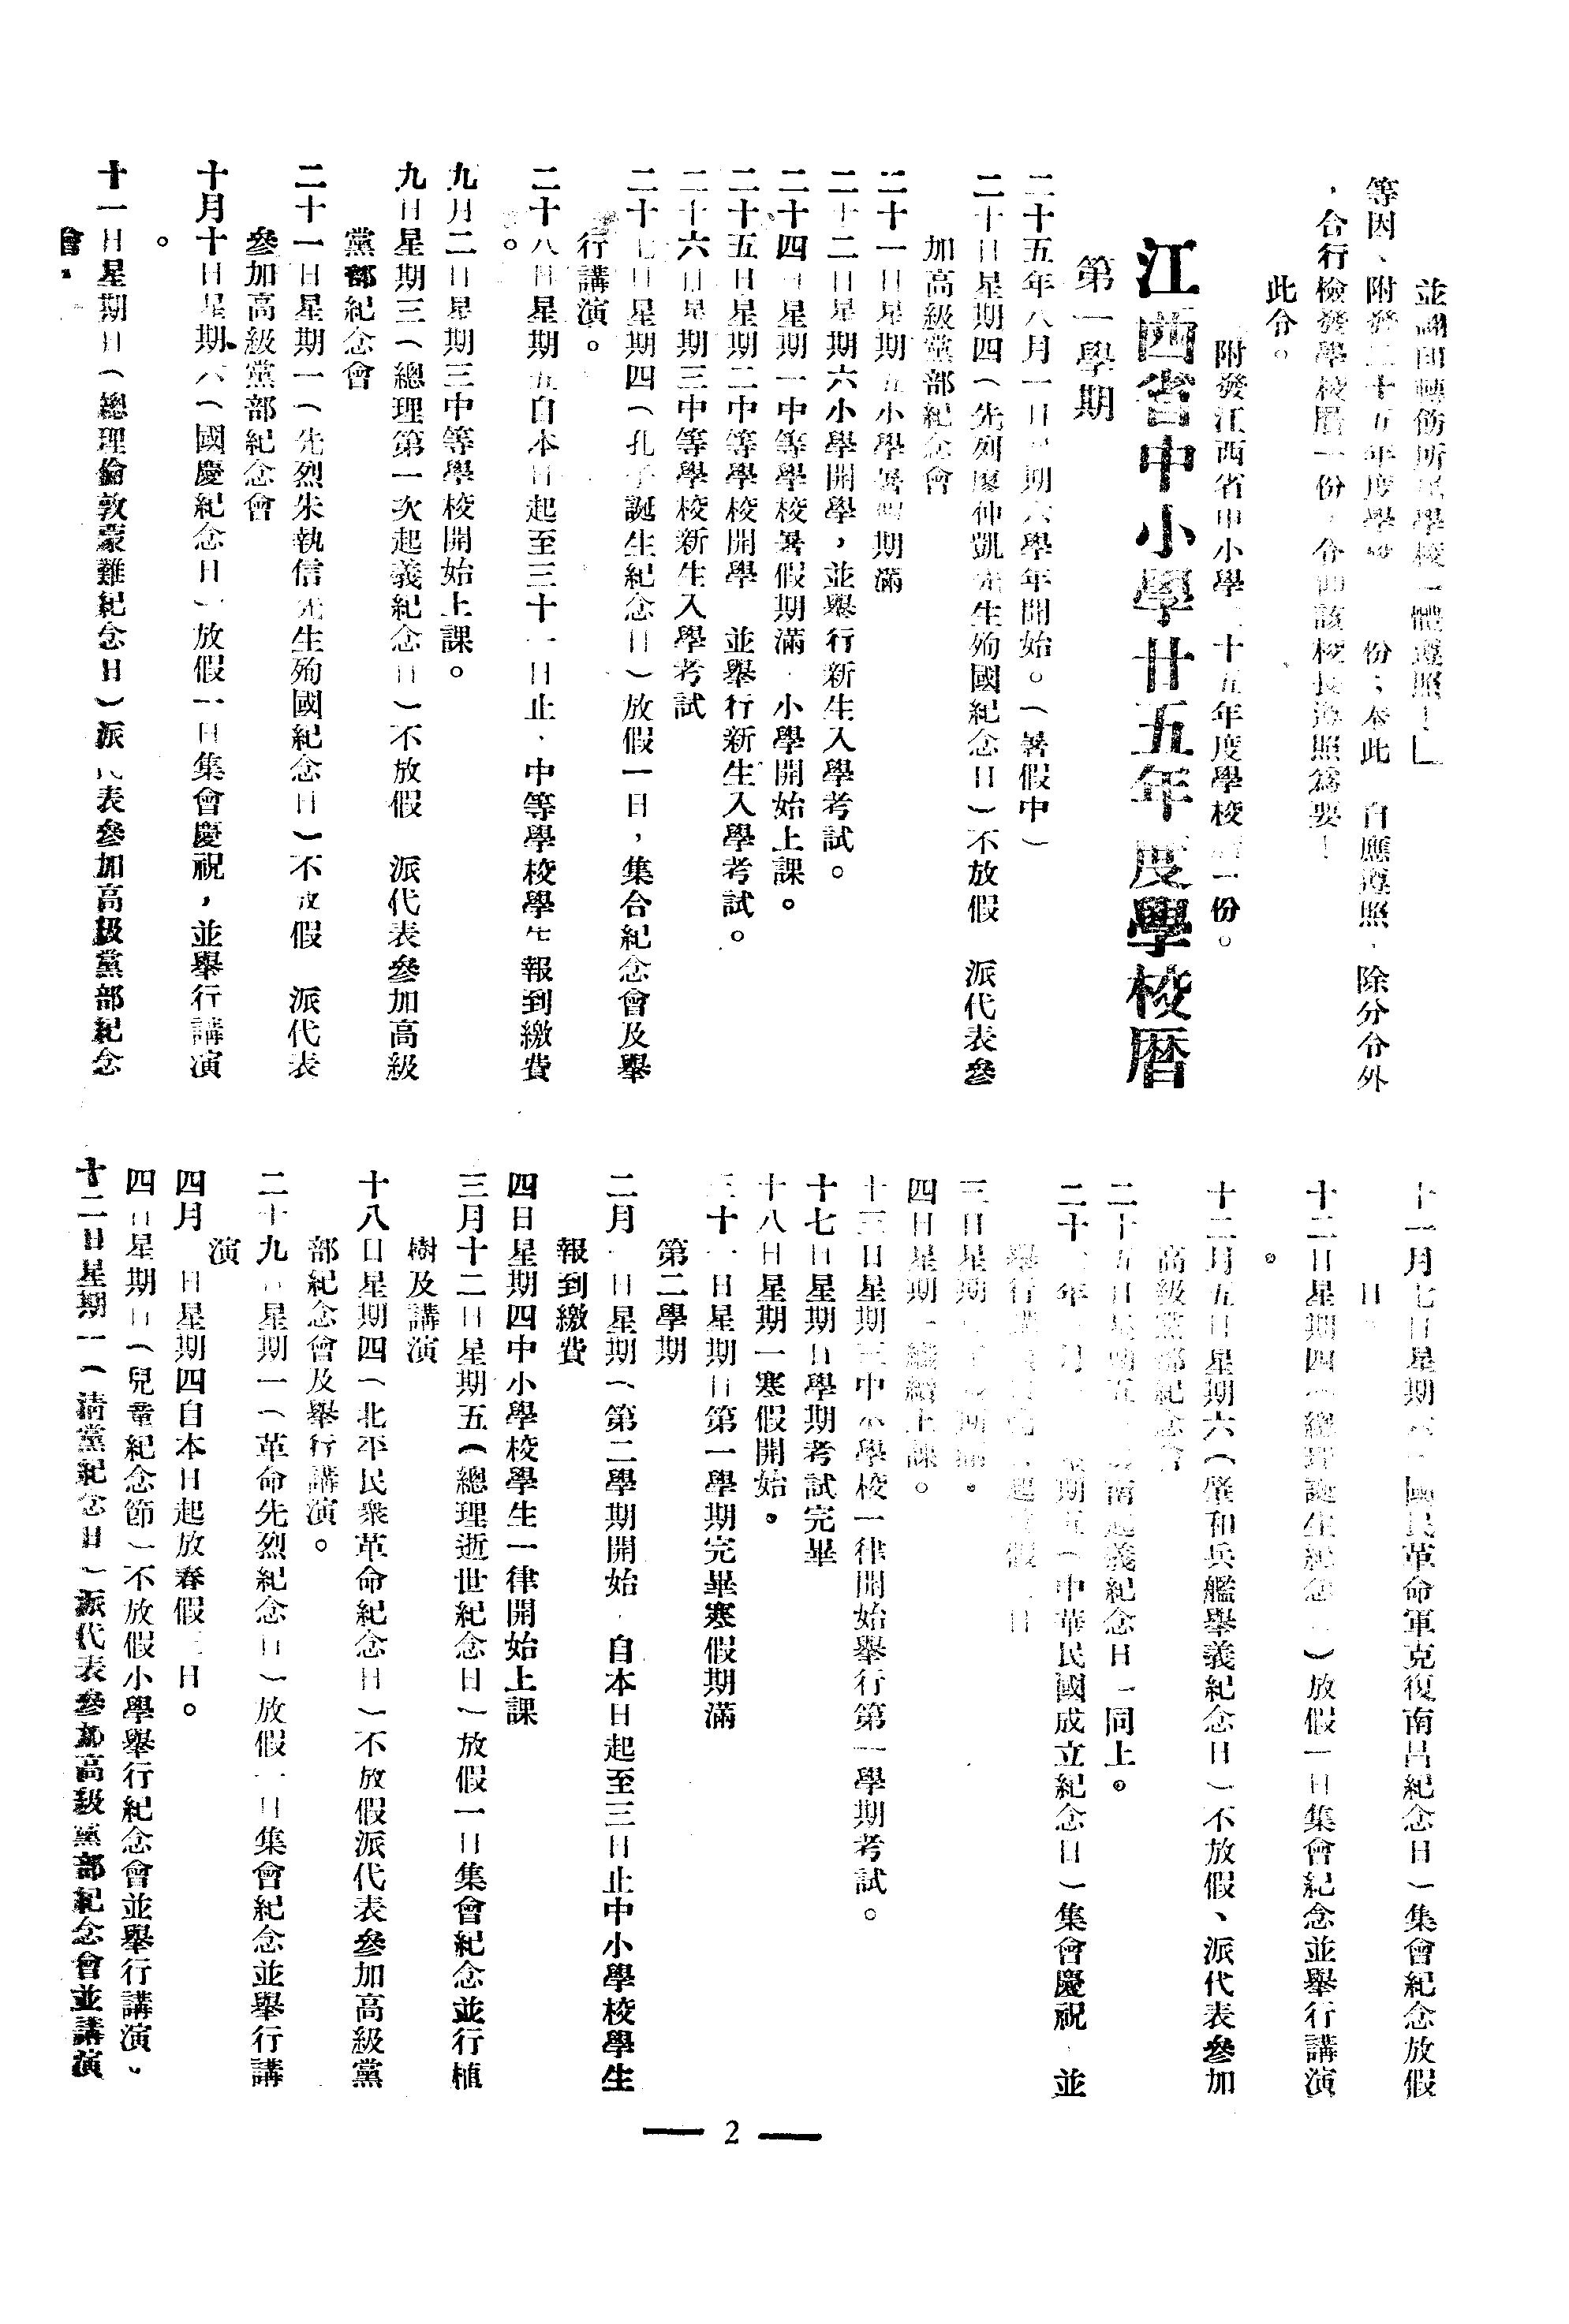 並翻印轉飭所屬學校一體遵照！」
等因、附發二十五年度學 份；奉此 自應遵照．除分令外
，合行檢發學校曆一份，令仰該校長遵照爲要！
此令。
附發江西省中小學二十五年度學校 一份。
江西省中小學廿五年度學校曆
第一學期
二十五年八月一日 期六學年開始。（暑假中）
二十日星期四（先烈廖仲凱先生殉國紀念日）不放假 派代表參
加高級黨部紀念會
二十一日星期五小學暑假期滿
二十二日星期六小學開學，並舉行新生入學考試。
二十四日星期一中等學校暑假期滿．小學開始上課。
二十五日星期二中等學校開學 並舉行新生入學考試。
二十六日星期三中等學校新生入學考試
二十七日星期四（孔子誕生紀念日）放假一日，集合紀念會及舉
行講演。
二十八日星期五自本日起至三十一日止．中等學校學生報到繳費
。
九月二日星期三中等學校開始上課。
九日星期三（總理第一次起義紀念日）不放假 派代表參加高級
黨部紀念會
二十一日星期一（先烈朱執信先生殉國紀念日）不放假 派代表
參加高級黨部紀念會
十月十日星期六（國慶紀念日）放假一日集會慶祝，並舉行講演
。
十一日星期日（總理倫敦蒙難紀念日）派代表參加高級黨部紀念
會．
十一月七日星期六（國民革命軍克復南昌紀念日）集會紀念放假
日
十二日星期四（總理誕生紀念日）放假一日集會紀念並舉行講演
。
十二月五日星期六（肇和兵艦舉義紀念日）不放假、派代表參加
高級黨部紀念會
二十五日星期五 南起義紀念日）同上。
二十 年 月 期五（中華民國成立紀念日）集會慶祝．並
舉行 起 假 日
三日星期
四日星期一繼續上課。
十三日星期三中小學校一律開始舉行第一學期考試。
十七日星期日學期考試完畢
十八日星期一寒假開始。
三十一日星期日第一學期完畢寒假期滿
第二學期
二月一日星期（第二學期開始．自本日起至三日止中小學校學生
報到繳費
四日星期四中小學校學生一律開始上課
三月十二日星期五（總理逝世紀念日）放假一日集會紀念並行植
樹及講演
十八日星期四（北平民衆革命紀念日）不放假派代表參加高級黨
部紀念會及舉行講演。
二十九日星期一（革命先烈紀念日）放假一日集會紀念並舉行講
演
四月 日星期四自本日起放春假三日。
四日星期日（兒童紀念節）不放假小學舉行紀念會並舉行講演、
十二日星期一（清黨紀念日）派代表參加高級黨部紀念會並講演
— 2 —